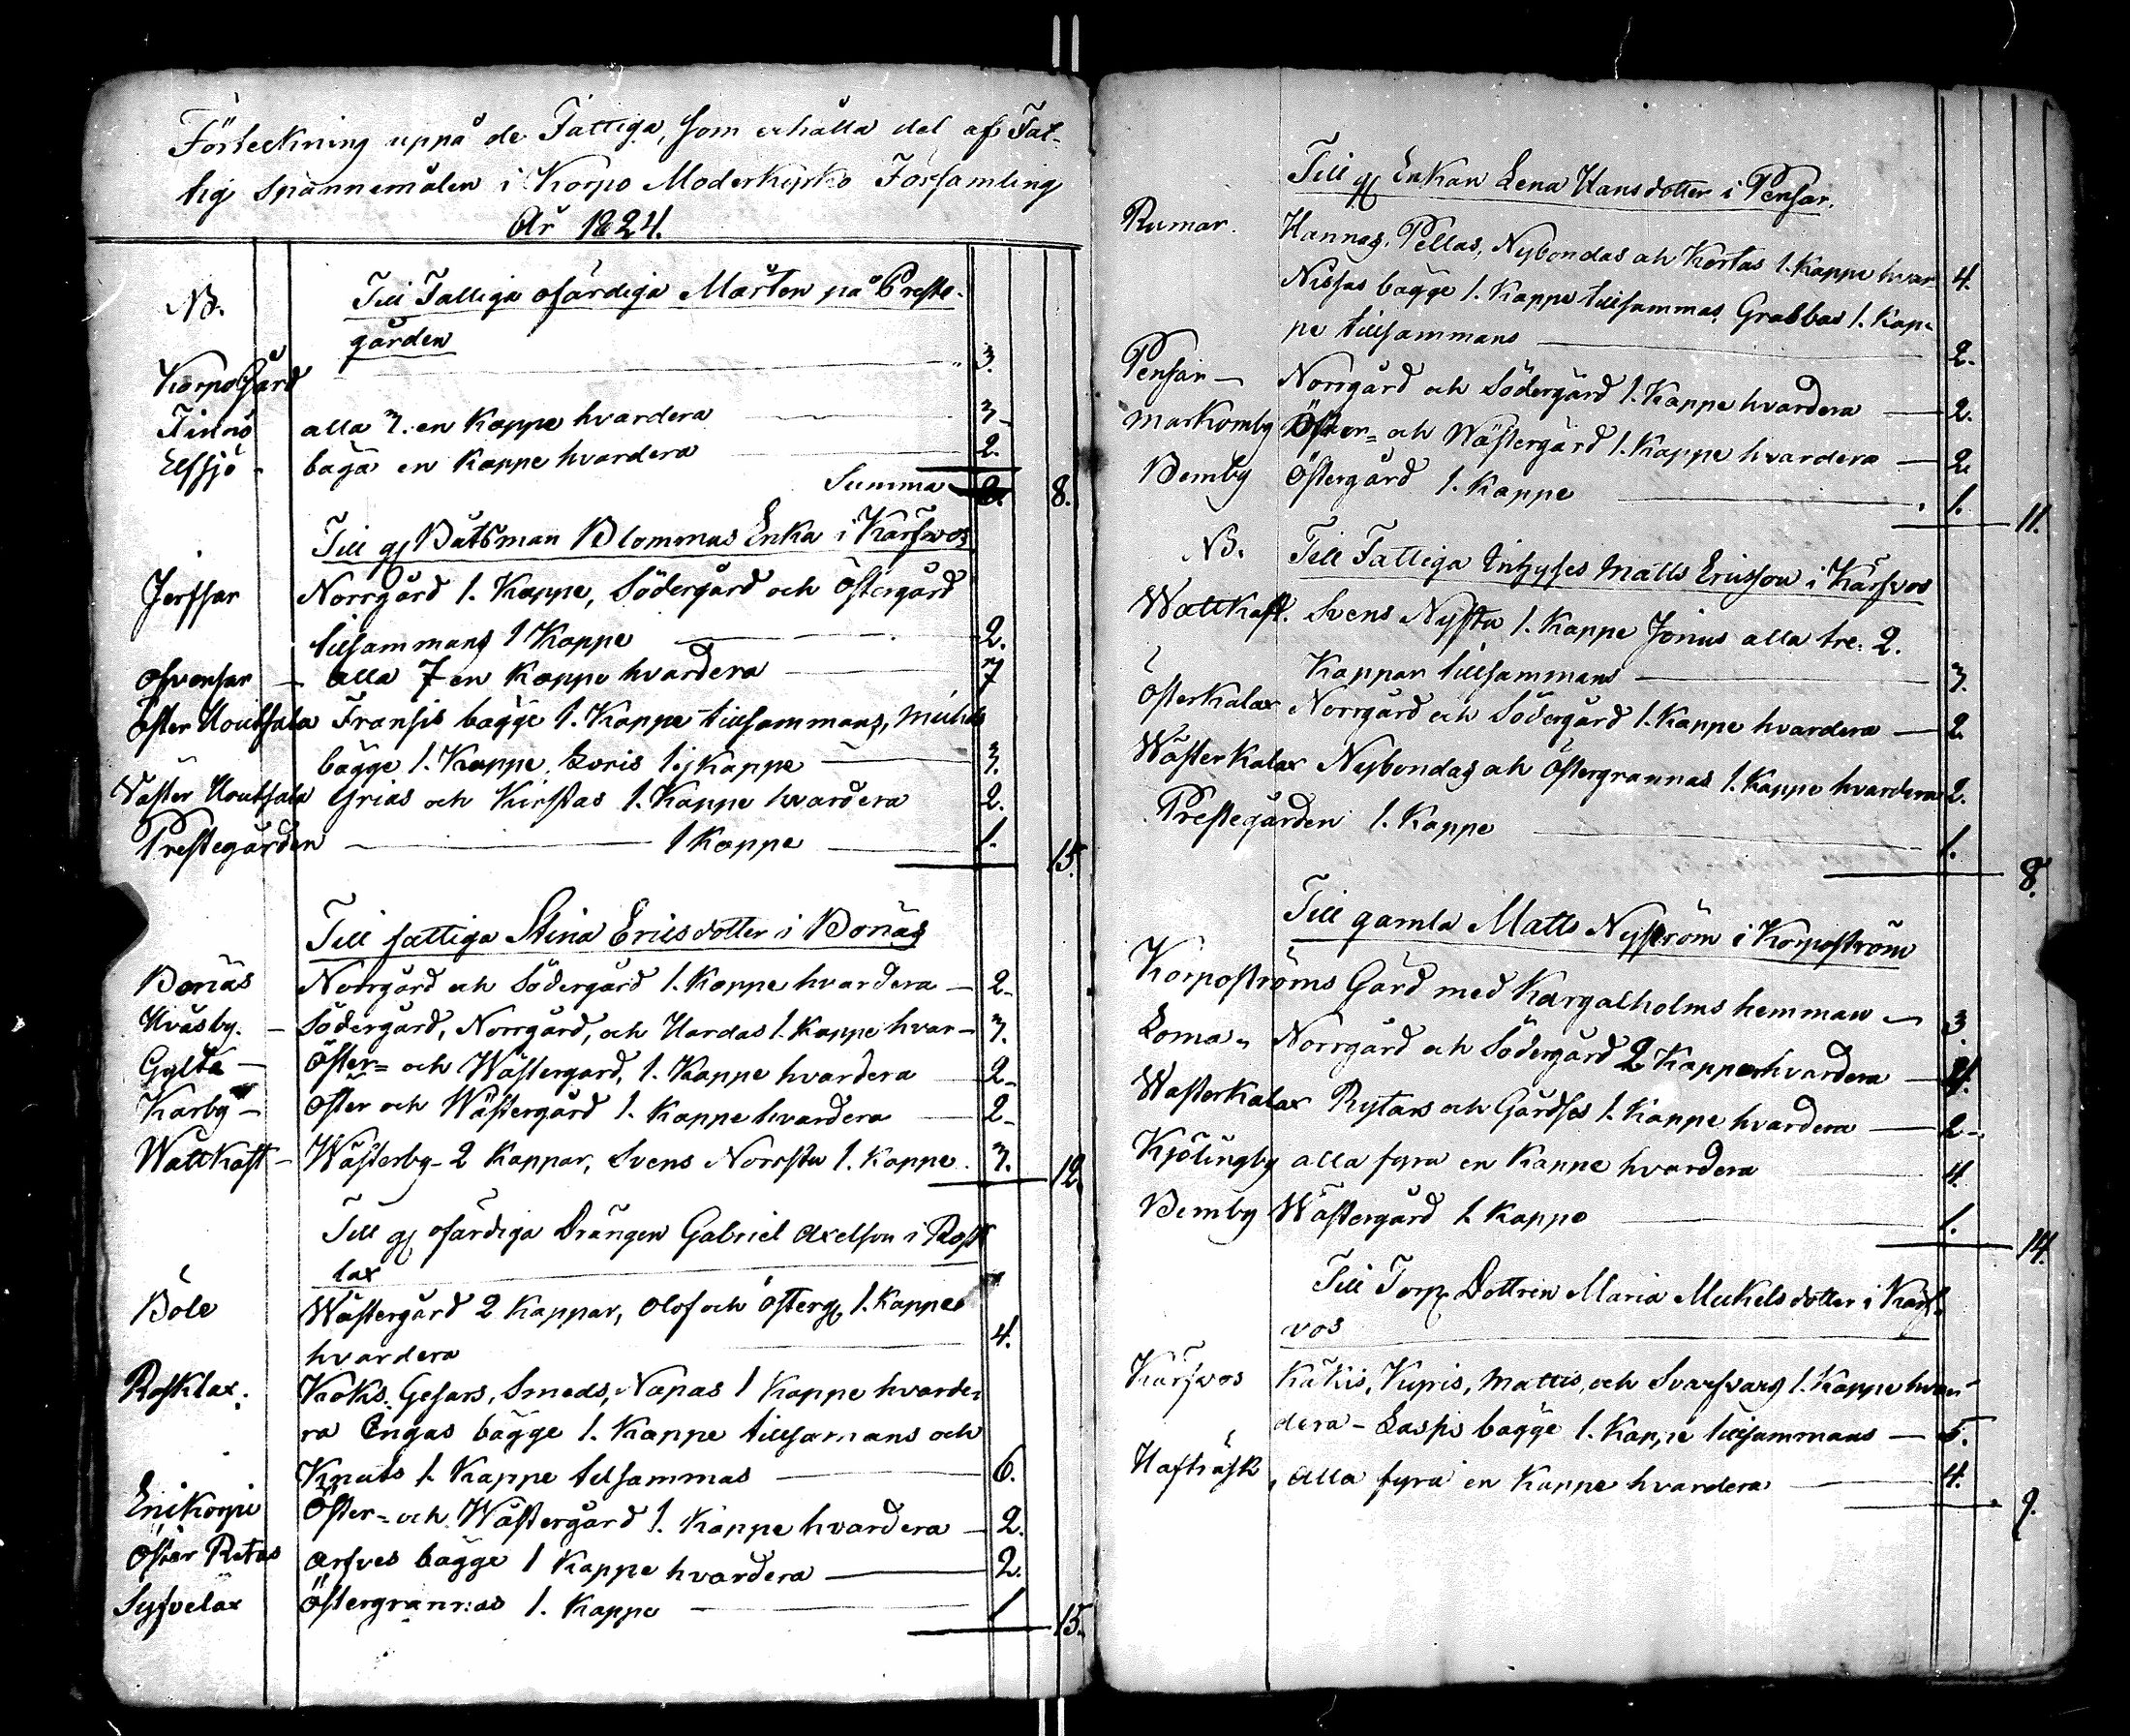 Förteckning uppå de Fattiga, som erhålla del af Fat-
tig Spannemålen i Korpo Moderkyrko Församling
År 1824.
NB. Till Fattiga ofärdiga Mårten på Preste-
gården
Korpo Gård 3.
Finnö alla 3. en Kappe hvardera 3.
Elfsjö - båga en Kappe hvardera 2.
Summa 8.
Till gl Båtsman Blommas Enka i Kärfvos
Jerfsar Norrgård 1. Kappe, Södergård och Östergård
tillsammans 1 Kappe 2.
Ofvensar - alla 7 en Kappe hvardera 7
Öster Houtsala Fransis bägge 1. Kappe tillsammans, Mickels
bägge 1. Kappe, Loris 1 Kappe 3.
Väster Houtsala Grias och Kirstas 1. Kappe hvardera 2.
Prestegården 1 Kappe 1. 15.
Till fattiga Stina Ericsdotter i Bonäs
Bonäs Norrgård och Södergård 1. Kappe hvardera - 2-
Hväsby. - Södergård, Norrgård, och Hardas 1. Kappe hvar - 3.
Gyltö - Öster= och Wästergård, 1. Kappe hvardera 2-
Karby - Öster och Wästergård 1. Kappe hvardera 2-
Wattkast - Wästerby - 2 Kappar, Svens Norrstu 1. Kappe. 3. 12.
Till gl ofärdiga Drängen Gabriel Axelson i Rosk
lax
Böle Wästergård 2 Kappar, Olof och Österg 1. Kappe
hvardera 4.
Rosklax. Köks, Gesars, Smeds, Napas 1 Kappe hvarde-
ra Engas bägge 1. Kappe tillsamans och
Knuts 1. Kappe tilsammas 6.
Enikorpi Öster= och Wästergård 1. Kappe hvardera - 2.
Öster Retas Arfves bägge 1 Kappe hvardera 2.
Syfvelax Östergrannas 1. Kappe 1 15.
Till gl Enkan Lena Hansdotter i Pensar.
Rumar. Hannas, Pellas, Nybondas och Kortas 1. Kappe hvar 4.
Nissas bägge 1. Kappe tillsammas, Grabbas 1. Kap-
pe tillsammans 2.
Pensar - Norrgård och Södergård 1. Kappe hvardera 2.
Markomby Öster= och Wästergård 1. Kappe hvardera - 2.
Bemby Östergård 1. Kappe 1. 11.
NB. Till Fattiga Inhyses Matts Ericsson i Kärfvos
Wattkast. Svens Nystu 1. Kappe Jonius alla tre. 2.
Kappar tillsammans 3.
Österkalax Norrgård och Södergård 1. Kappe hvardera - 2
Wästerkalax Nybondas och Östergrannas 1. Kappe hvardera 2.
Prestegården 1. Kappe 1. 8.
Till gamla Matts Nyström i Korpoström
Korpoströms Gård med Kargalholms hemman - 3.
Loma - Norrgård och Södergård 2 Kappar hvardera - 4.
Wästerkalax Rytars och Gårdses 1. Kappe hvardera - 2-
Kjölingby alla fyra en Kappe hvardera 4.
Bemby Wästergård 1. Kappe 1. 14.
Till Torp. Dottren Maria Mickelsdotter i Kärf-
vos
Kärfvos Käkis, Kipis, Mattis, och Svarfvars 1. Kappe hvar-
dera - Lasps bägge 1. Kappe tillsammans - 5.
Hafträsk alla fyra en Kappe hvardera 4. 9.